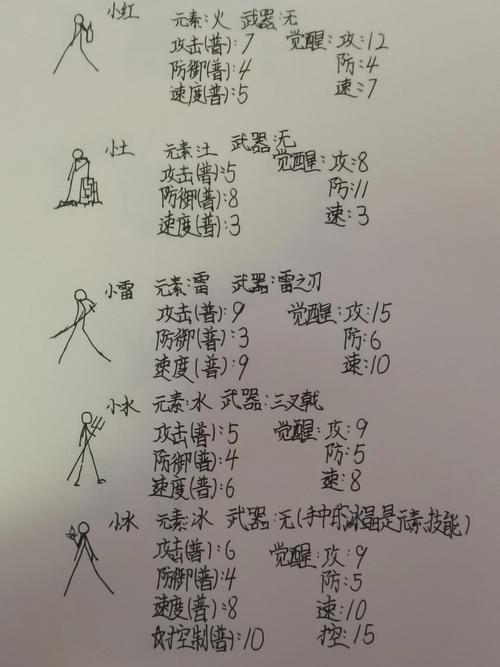 小红 元素:火 武器:无
攻击(普):7 觉醒:攻:12
防御(普):4 防:4
速度(普):5 速:7
小土 元素:土 武器:无
攻击(普):5 觉醒:攻:8
防御(普):8 防:11
速度(普):3 速:3
小雷 元素:雷 武器:雷之刃
攻击(普):9 觉醒:攻:15
防御(普):3 防:6
速度(普):9 速:10
小水 元素:水 武器:三叉戟
攻击(普):5 觉醒:攻:9
防御(普):4 防:5
速度(普):6 速:8
小冰 元素:冰 武器:无(手中的冰晶是元素技能)
攻击(普):6 觉醒:攻:9
防御(普):4 防:5
速度(普):8 速:10
控制(普):10 控:15